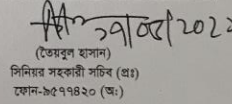 ২৭/০৫/২০২২
(তৈয়বুল হাসান)
সিনিয়র সহকারী সচিব (প্রঃ)
ফোন-৯৫৭৭৪২০ (অঃ)